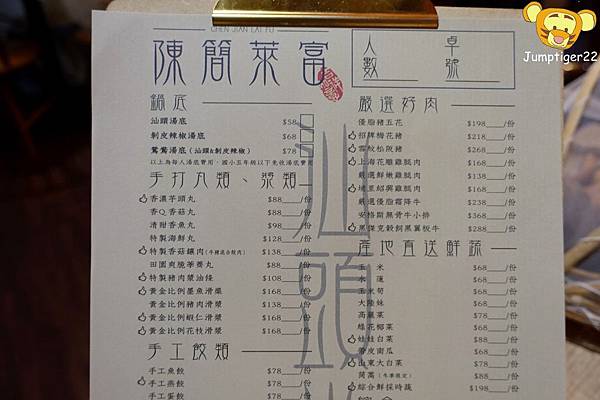 Jumptiger22
CHEN JIAN LAI FU
陳簡萊富
人數
卓號
鍋底
汕頭湯底 $58
剝皮辣椒湯底 $68
鴛鴦湯底(汕頭&剝皮辣椒) $78
以上為每人湯底費用,國小五年級以下免收湯底費用
手打丸類、漿類
香濃芋頭丸 $88 /份
香Q香菇丸 $88 /份
清甜香魚丸 $98 /份
特製海鮮丸 $128 /份
特製香菇鑲肉 $138 /份
田園爽脆荸薺丸 $88 /份
特製豬肉漿油條 $108 /份
黃金比例墨魚滑漿 $168 /份
黃金比例豬肉滑漿 $138 /份
黃金比例蝦仁滑漿 $168 /份
黃金比例花枝滑漿 $168 /份
手工餃類
手工魚餃 $78 /份
手工燕餃 $78 /份
手工蛋餃 $78 /份
嚴選好肉
優脂豬五花 $198 /份
招牌梅花豬 $218 /份
雪紋松阪豬 $268 /份
上海花雕雞腿肉 $168 /份
嚴選鮮嫩雞腿肉 $138 /份
埔里紹興雞腿肉 $168 /份
嚴選優脂霜降牛 $238 /份
安格斯無骨牛小排 $368 /份
黑傑克穀飼黑翼板牛 $288 /份
產地直送鮮蔬
玉米 $68 /份
水蓮 $68 /份
玉米筍 $68 /份
大陸妹 $68 /份
高麗菜 $78 /份
綠花椰菜 $88 /份
娃娃白菜 $88 /份
帶皮南瓜 $68 /份
山東大白菜 $78 /份
茼蒿(冬季限定) $88 /份
綜合鮮採時蔬 $198 /份
汕頭